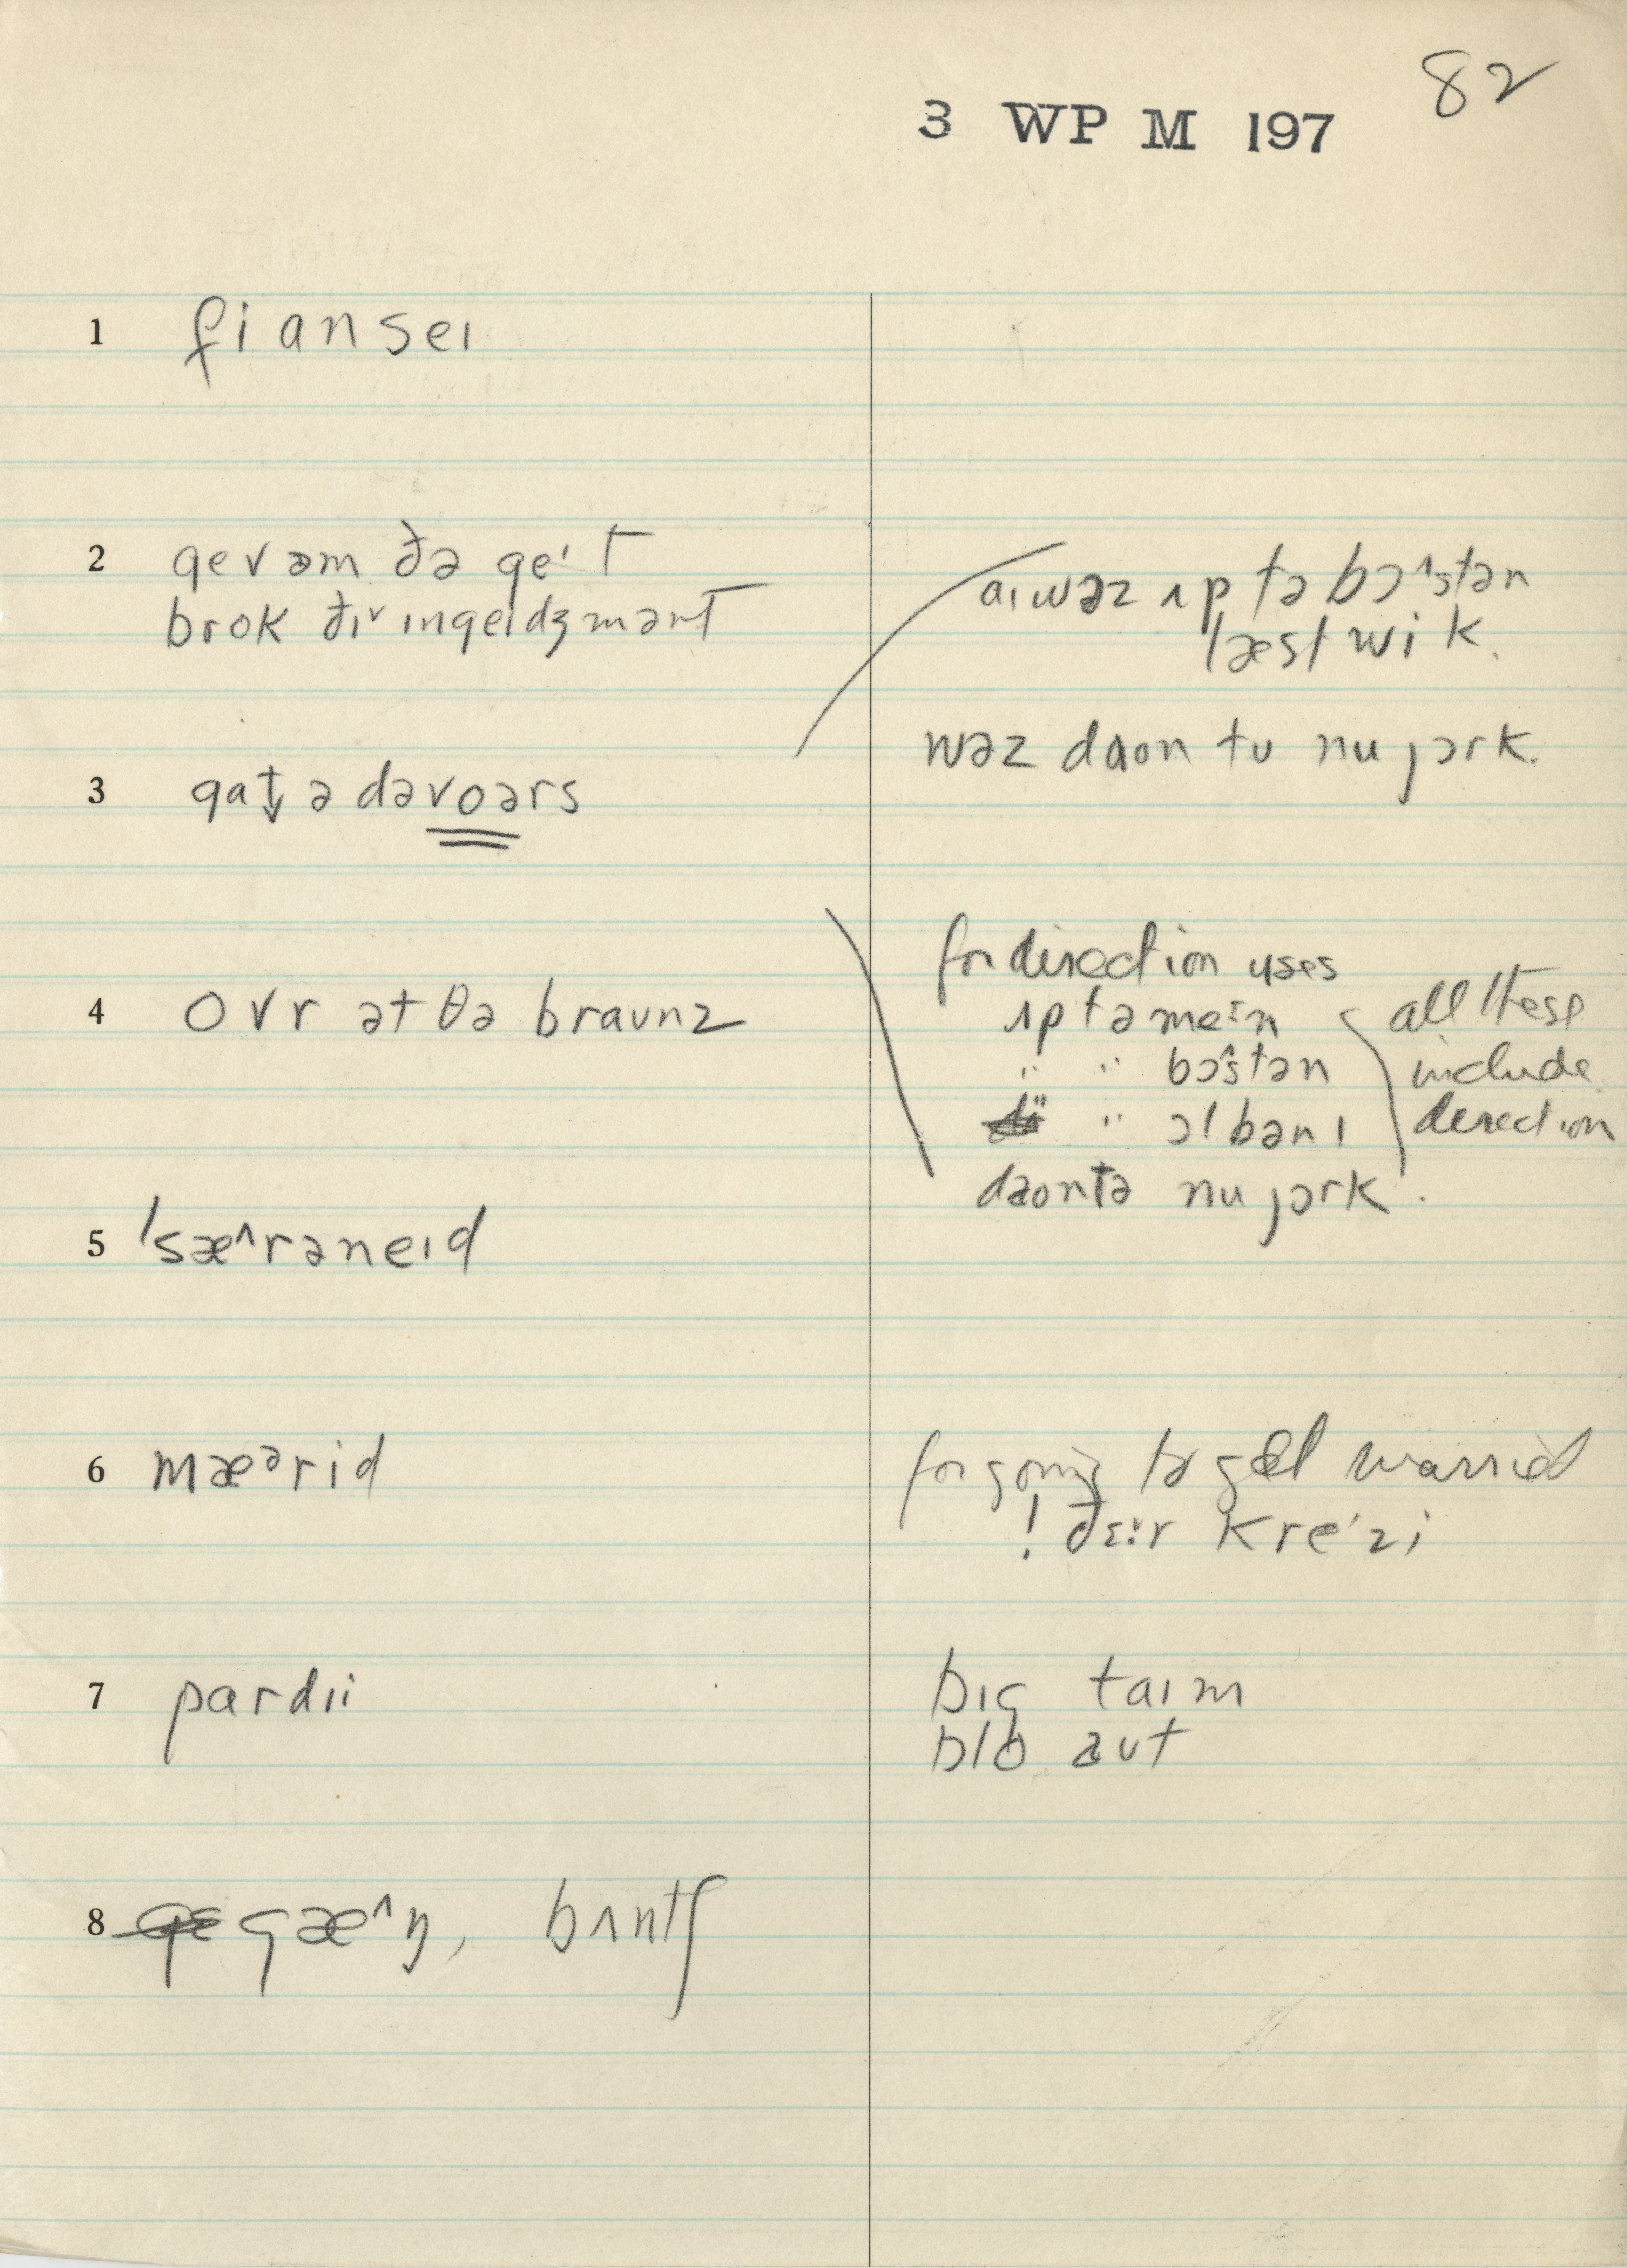 82
3 WP M 197
1 fianseɪ
2 gev əm ðə geˈt
brok ðɪ˅ ɪngeɪdʒmənt
aɪ wəz ʌp tə bɔ^stən
læst wik.
wəz daon tu nu jɔrk.
3 gat̬ ə dəvoərs
for direction uses
4 ovr ət θə braunz
ʌp tə meɪn
all these
" " bɔ^stən
include
" " ɔlbənɪ
direction
daontə nu jɔrk.
5 ˈsæ^rəneɪd
6 mæᵊrid
for going to get married
! ðɛːr kreˈzi
7 pardɪi
bɪg taɪm
blo aut
8 gæ^ŋ, bʌntʃ